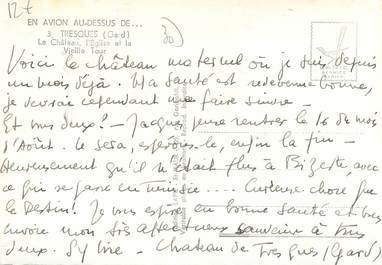 12 F
EN AVION AU-DESSUS DE...
3. TRESQUES (Gard)
Le Château, l'Eglise et la
Vieille Tour
30
Voici le château maternel où je suis depuis
un mois déjà. Ma santé est redevenue bonne,
je devrais cependant me faire suivre -
Et vous deux? - Jacques pense rentrer le 16 du mois
d'Août. Ce sera, espérons-le, enfin la fin -
Heureusement qu'il n'était plus à Bizerte, avec
ce qui se passe en Tunisie.... Curieuse chose que
le Destin! Je vous espère en bonne santé et vous
envoie mon très affectueux souvenir à tous
deux. Sylvie - Chateau de Tresques (Gard)